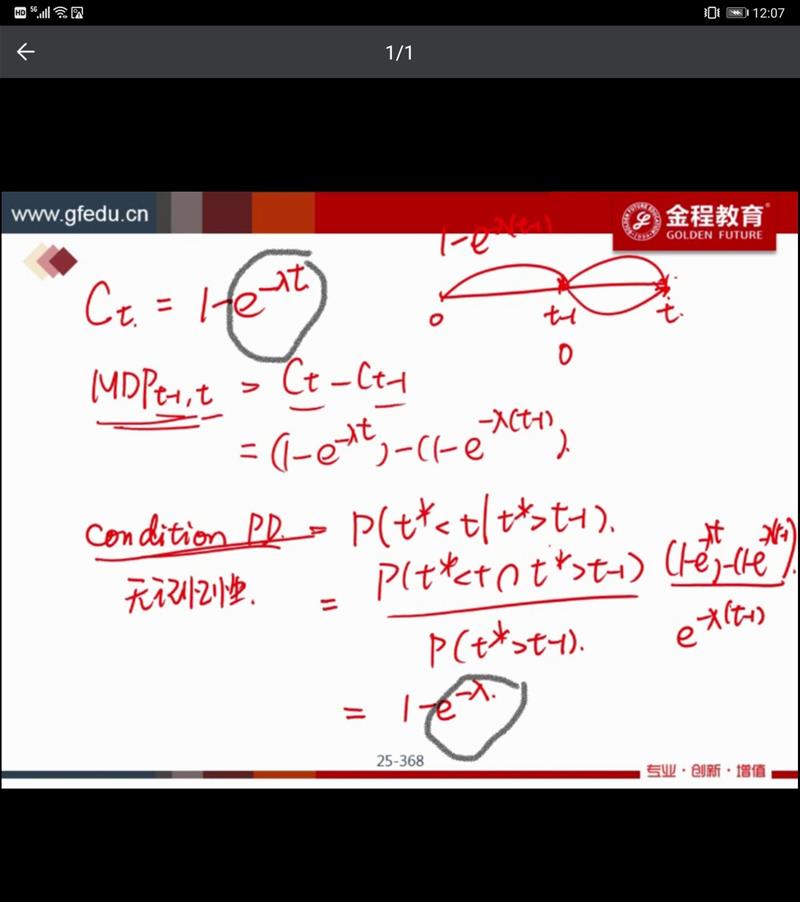 HD 5G 12:07
1/1
www.gfedu.cn
金程教育®
GOLDEN FUTURE
1-e^-λ(t-1)
Ct. = 1-e^-λt
0 t-1 t.
0
MDPt-1,t = Ct - Ct-1
= (1-e^-λt) - (1-e^-λ(t-1)).
Condition PD. = P(t*<t|t*>t-1).
无记忆性.
= P(t*<t∩t*>t-1) (1-e^-λt)-(1-e^-λ(t-1)).
P(t*>t-1). e^-λ(t-1)
= 1-e^-λ.
25-368
专业·创新·增值